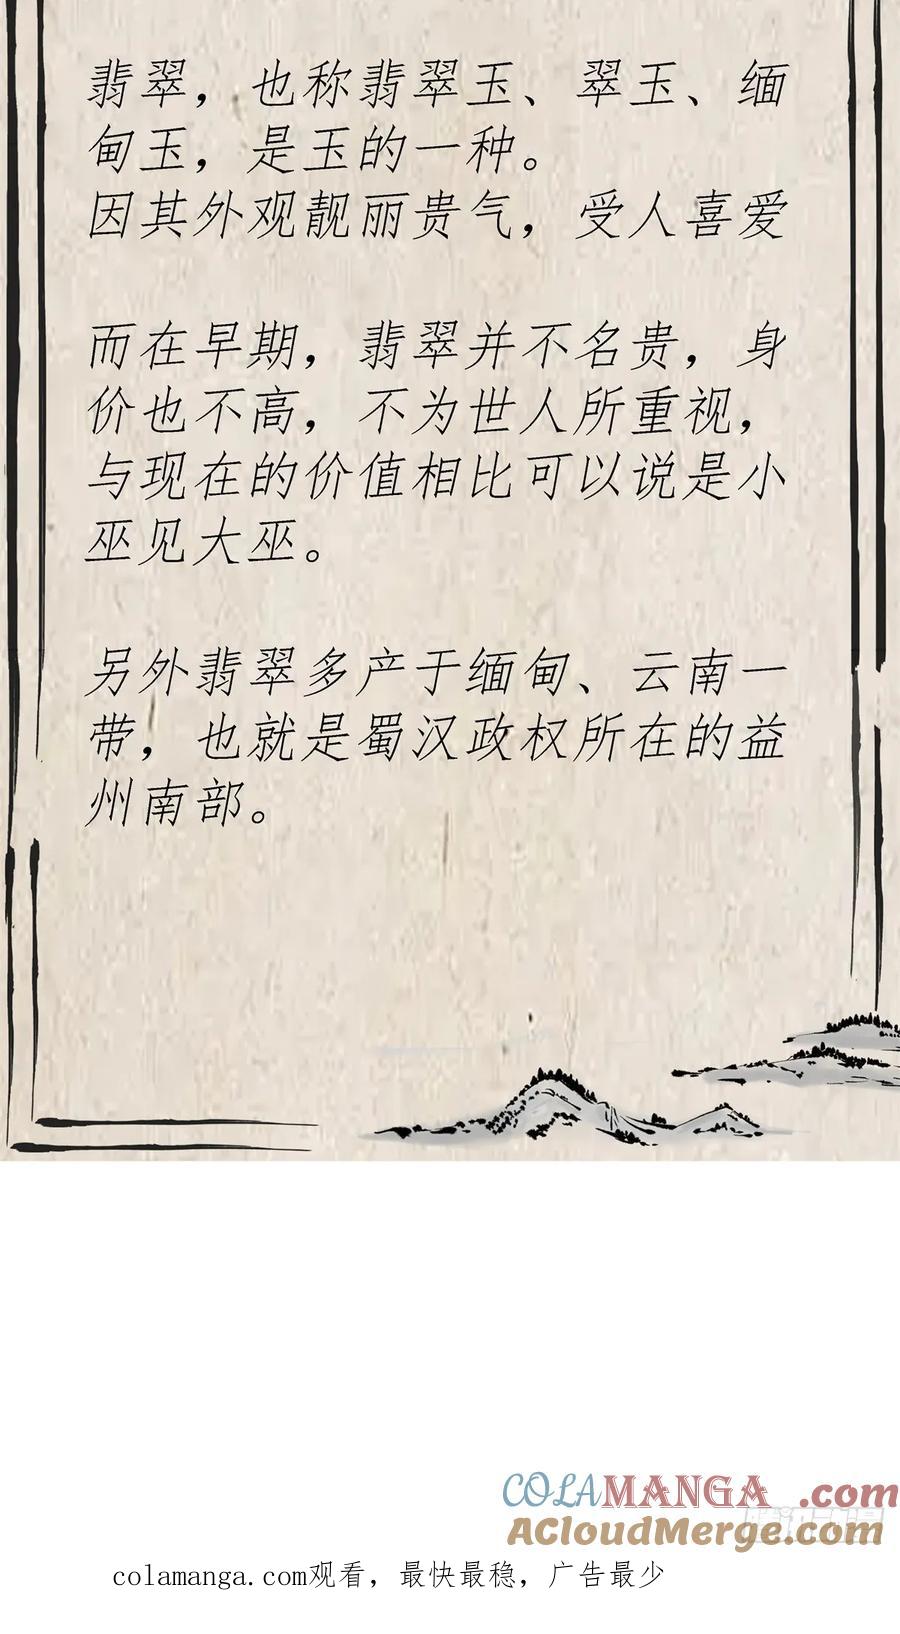 翡翠，也称翡翠玉、翠玉、缅
甸玉，是玉的一种。
因其外观靓丽贵气，受人喜爱
而在早期，翡翠并不名贵，身
价也不高，不为世人所重视，
与现在的价值相比可以说是小
巫见大巫。
另外翡翠多产于缅甸、云南一
带，也就是蜀汉政权所在的益
州南部。
COLAMANGA.com
ACloudMerge.com
colamanga.com观看，最快最稳，广告最少